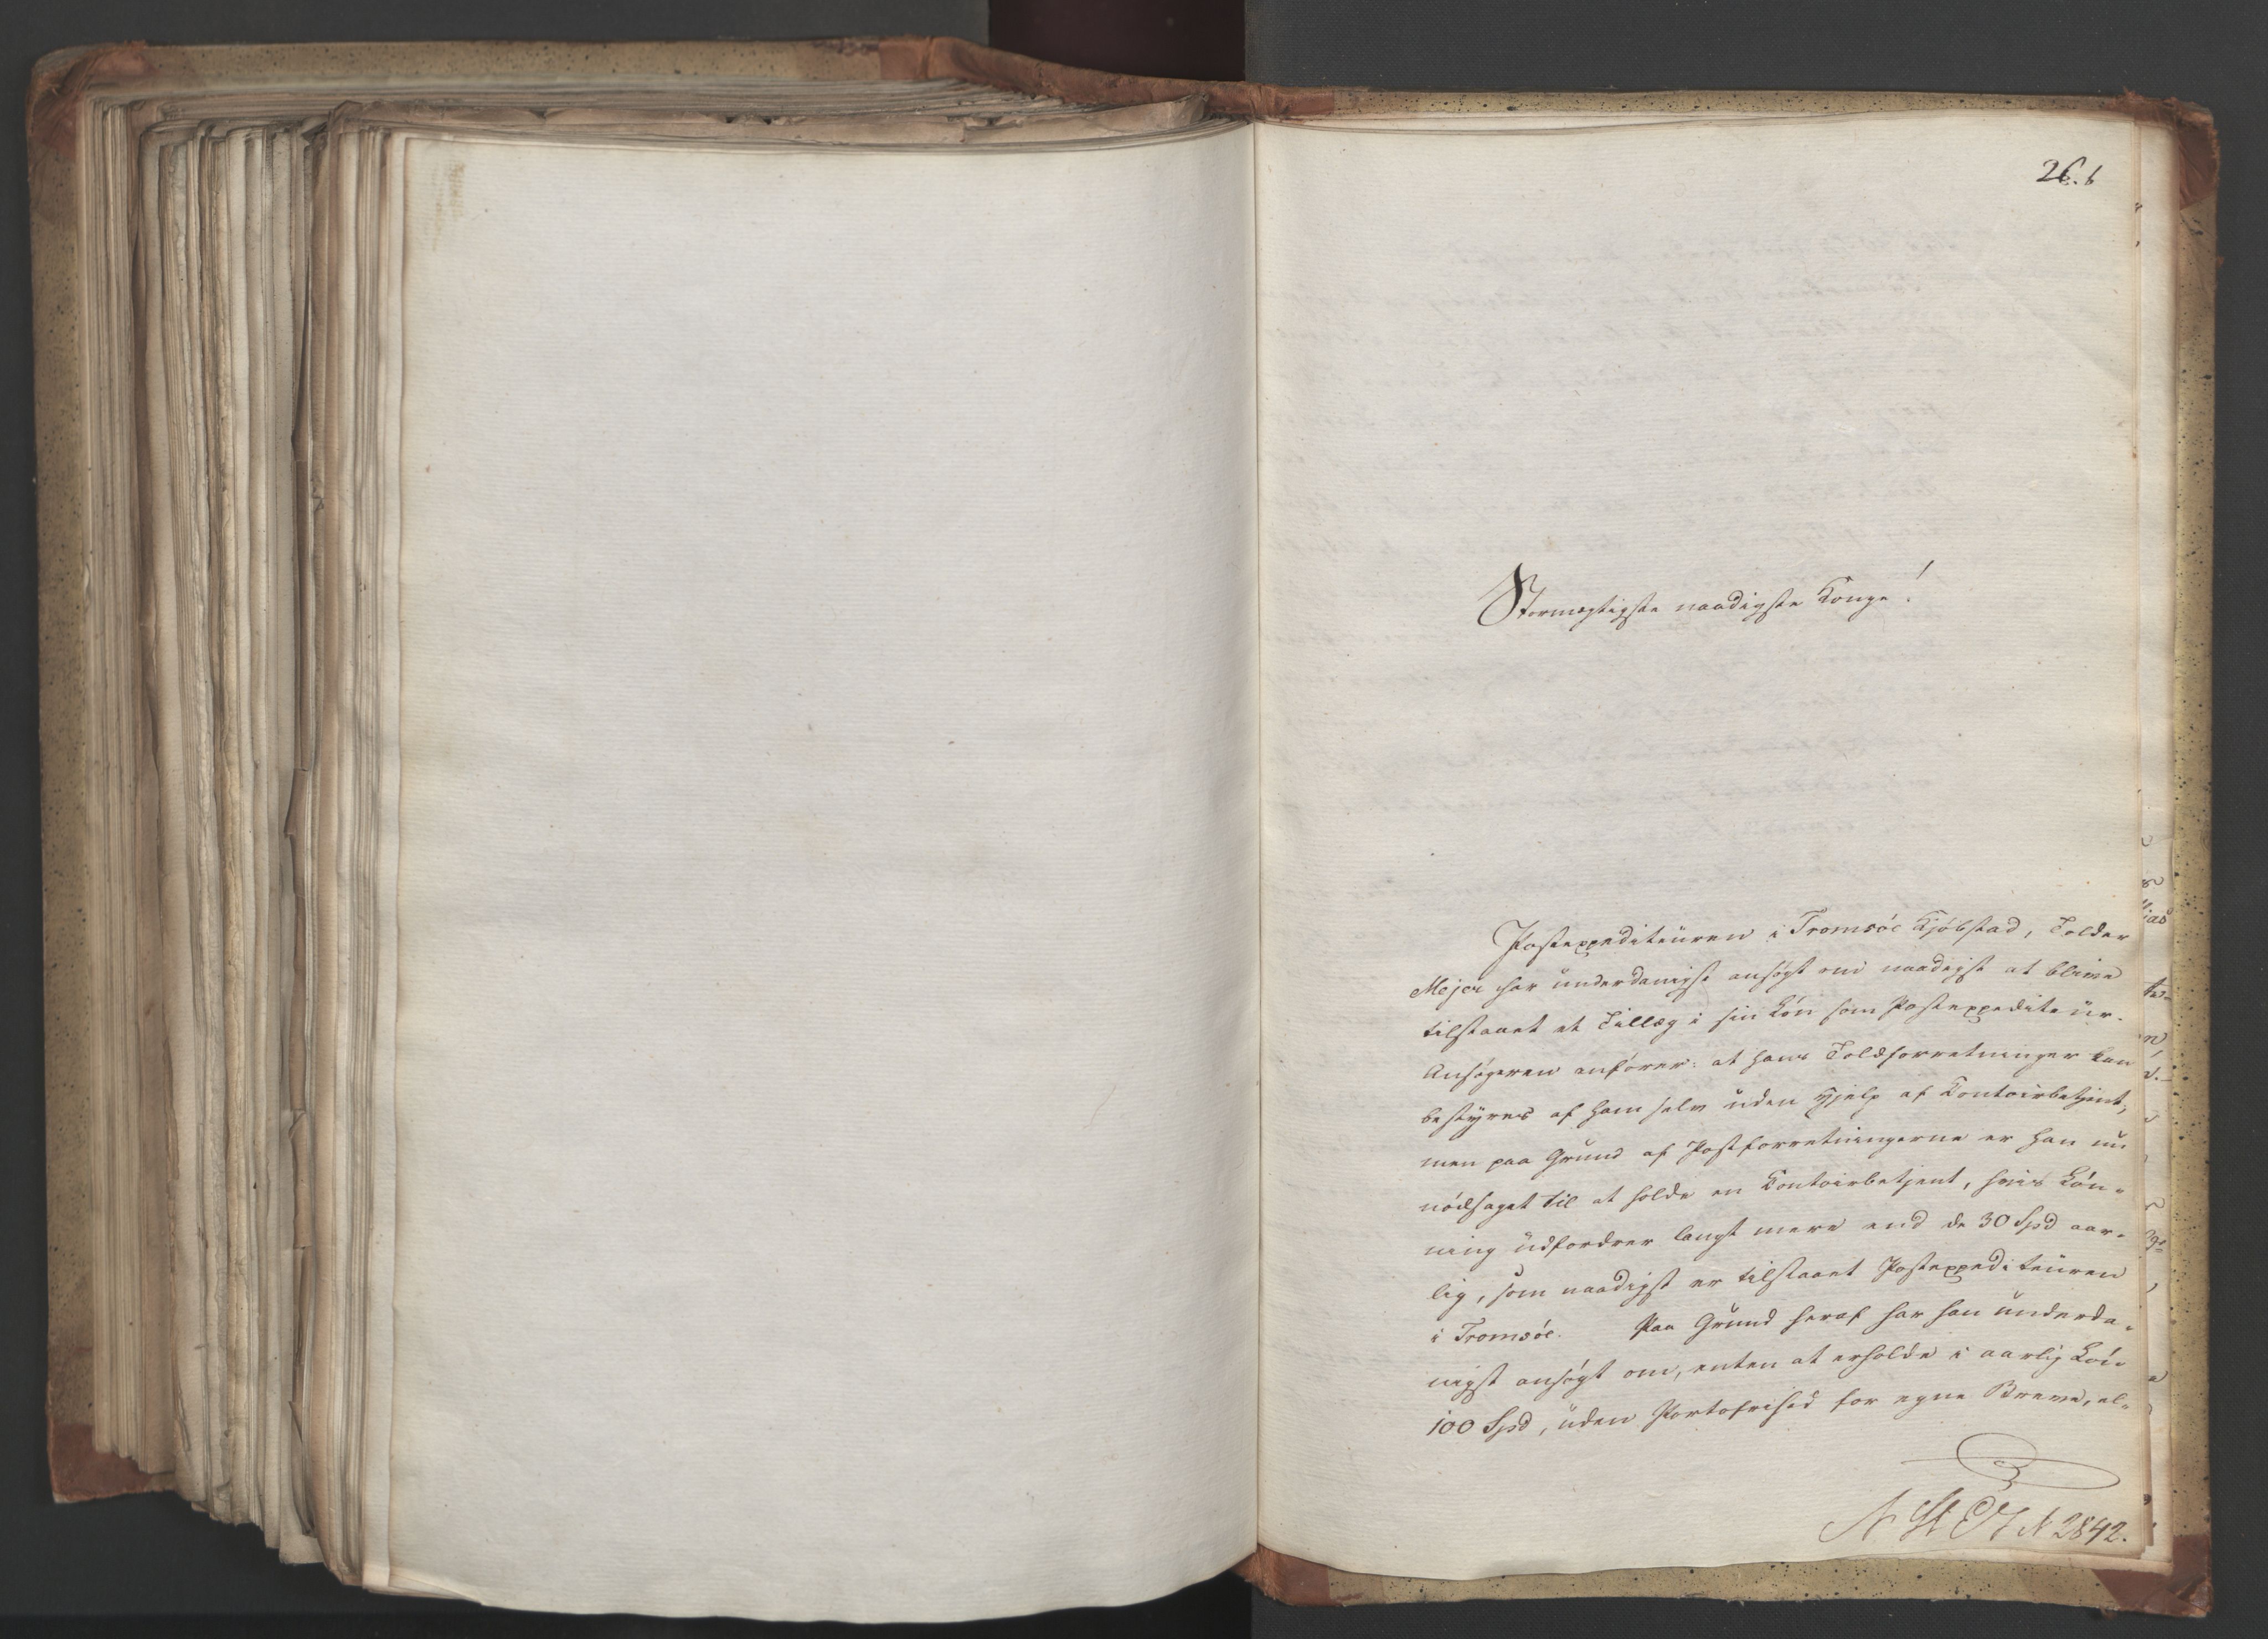 26. b
Stormægtigste naadigste Konge!
Postexpediteuren i Tromsöe Kjöbstad, Tolder
Mejer har underdanigst ansögt om naadigst at blive
tilstaaet et Tillæg i sin Lön som Postexpediteur.
Ansögeren anförer: at hans Toldforretninger kan
bestyres af ham selv uden Hjelp af Contoirbetjent,
men paa Grund af Postforretningerne er han nu
nödsaget til at holde en Contoirbetjent, hvis Lön-
ning udfordrer langt mere end de 30 Spd aar-
lig, som naadigst er tilstaaet Postexpediteuren
i Tromsöe. Paa Grund heraf har han underda-
nigst ansögt om, enten at erholde i aarlig Lön
100 Spd, uden Portofrihed for egne Breve, el-
N St E J N 2842.